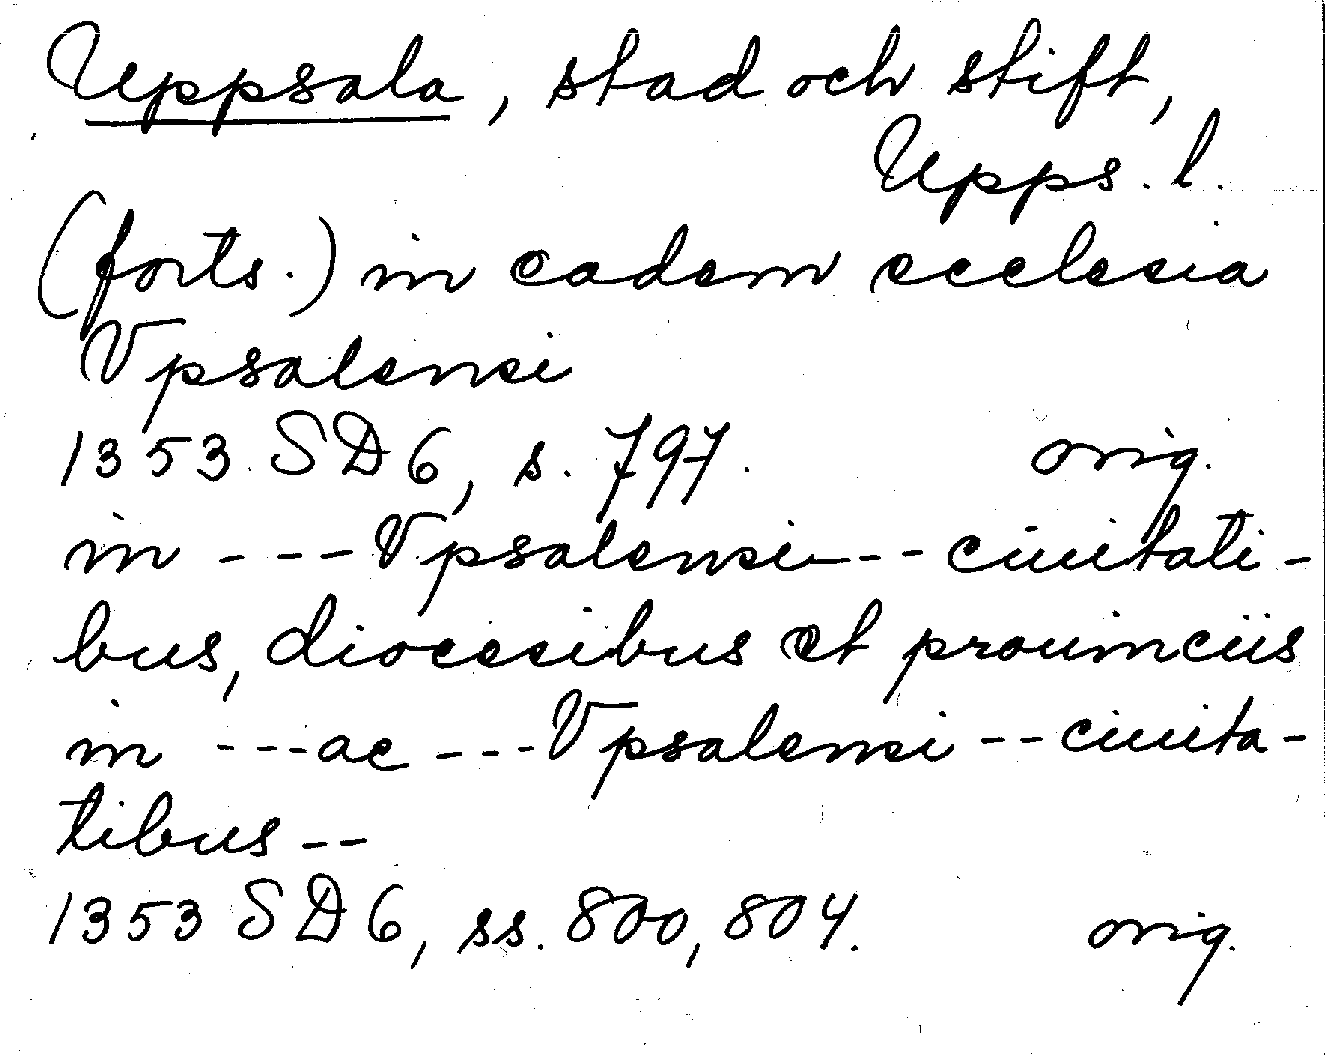 Uppsala, stad och stift,
Upps. l.
(forts.) in eadem ecclesia
Vpsalensi
1353 SD 6, s. 797. orig.
in --- Vpsalensi -- ciuitati-
bus, diocesibus et prouinciis
in --- ac --- Vpsalensi -- ciuita-
tibus --
1353 SD 6, ss. 800, 804. orig.